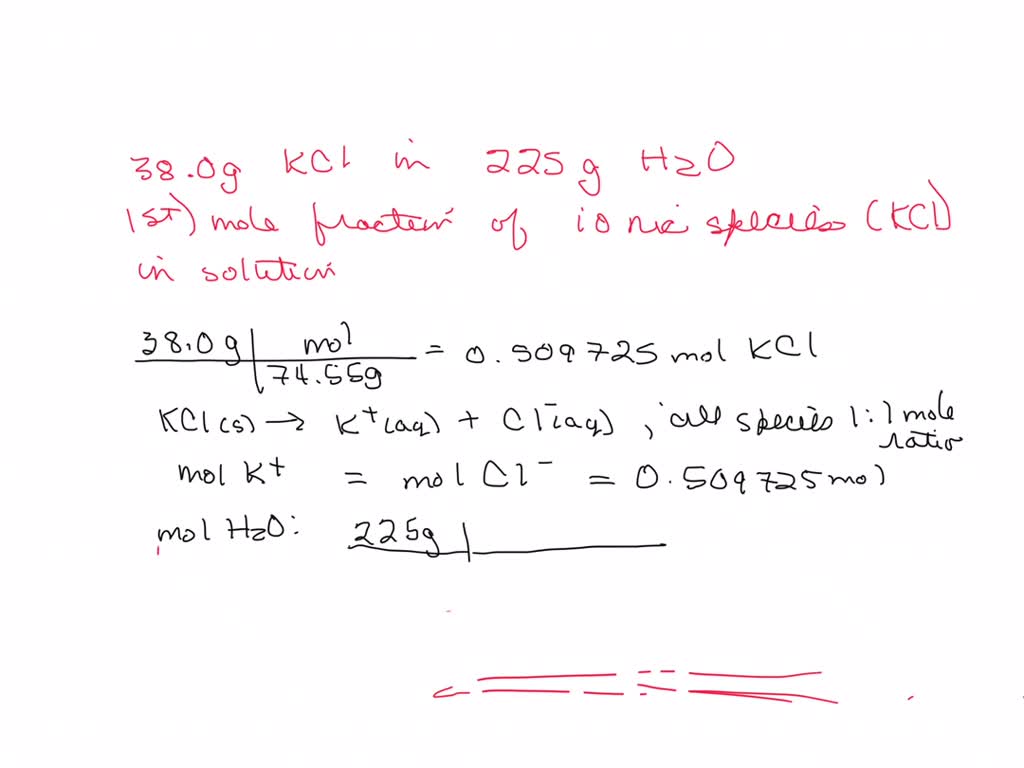 38.0g KCl in 225g H2O
1st) mole fraction of ionic species (KCl)
in solution
38.0g | mol = 0.509725 mol KCl
74.55g
KCl(s) → K+(aq) + Cl-(aq) ; all species 1:1 mole
ratio
mol K+ = mol Cl- = 0.509725 mol
mol H2O: 225g |